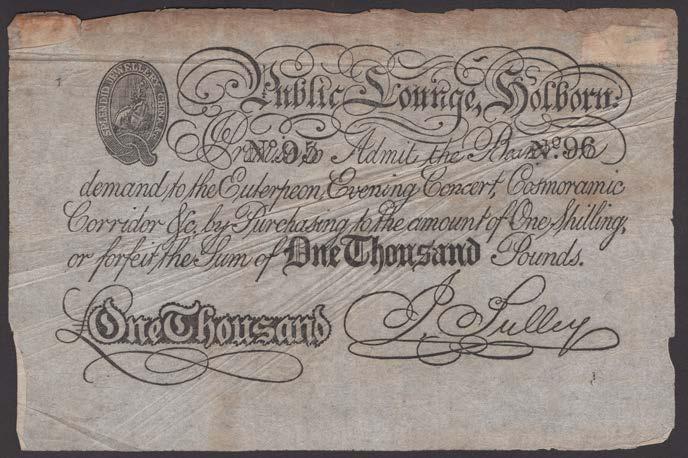 SPLENDID JEWELLERY, CHINA, &c
Public Lounge, Holborn:
No. 95 Admit the No. 96
demand to the Euterpeon, Evening Concert, Cosmoramic
Corridor &c, by Purchasing to the amount of One Shilling,
or forfeit the Sum of One Thousand Pounds.
£ One Thousand J. Sulley